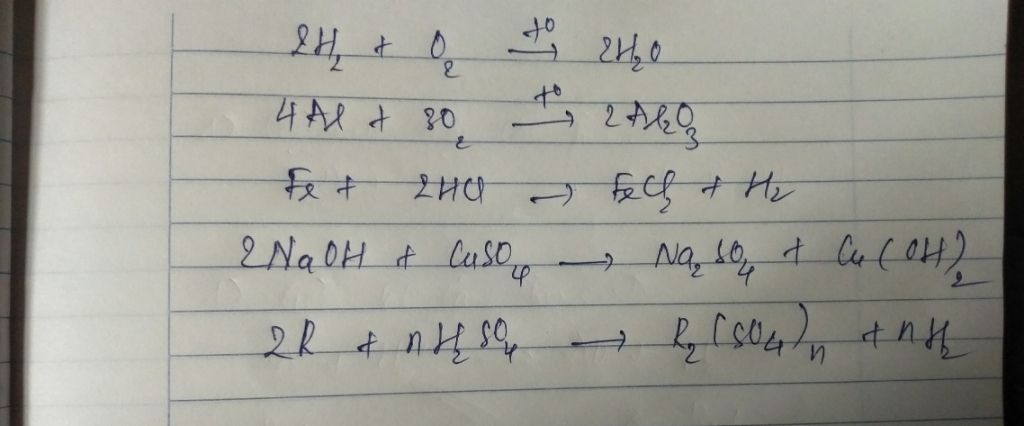 2H₂ + O₂ →(t⁰) 2H₂O
4Al + 3O₂ →(t⁰) 2Al₂O₃
Fe + 2HCl → FeCl₂ + H₂
2NaOH + CuSO₄ → Na₂SO₄ + Cu(OH)₂
2R + nH₂SO₄ → R₂(SO₄)ₙ + nH₂